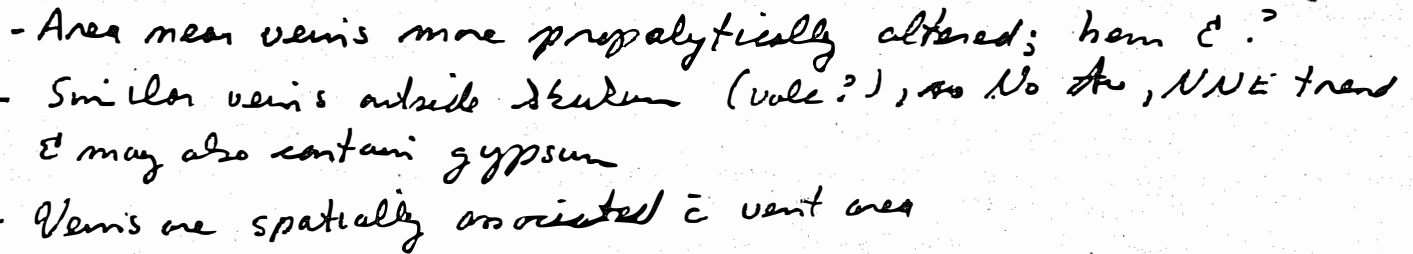 - Area near veins more propalytically altered; hem & ?
- Similar veins outside Skukum (volc?), No Au, NNE trend
& may also contain gypsum
- Veins are spatially associated c̄ vent area